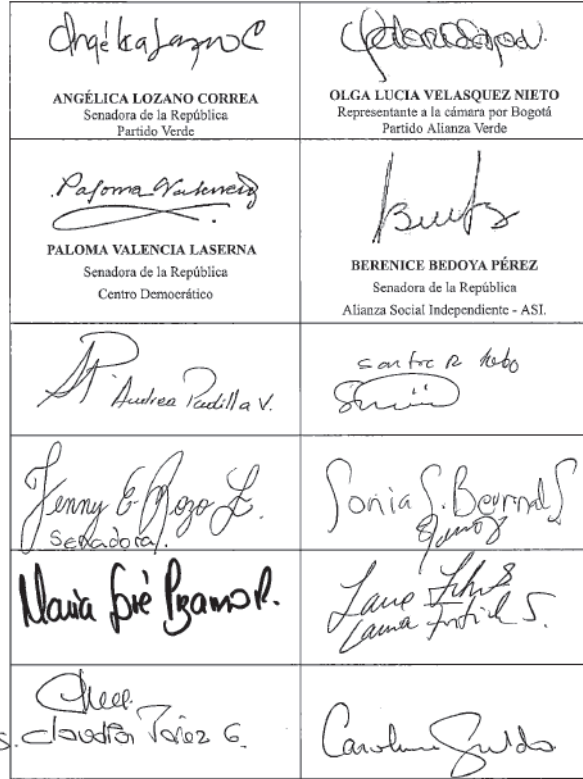 Angélica Lozano C
ANGÉLICA LOZANO CORREA
Senadora de la República
Partido Verde
OLGA LUCIA VELASQUEZ NIETO
Representante a la cámara por Bogotá
Partido Alianza Verde
Paloma Valencia
PALOMA VALENCIA LASERNA
Senadora de la República
Centro Democrático
BERENICE BEDOYA PÉREZ
Senadora de la República
Alianza Social Independiente - ASI.
Andrea Padilla V.
Jenny E. Rozo Z.
Senadora.
Sonia S. Bernal S
María José Pizarro R.
Laura Fortich S.
S. Claudia Pérez G.